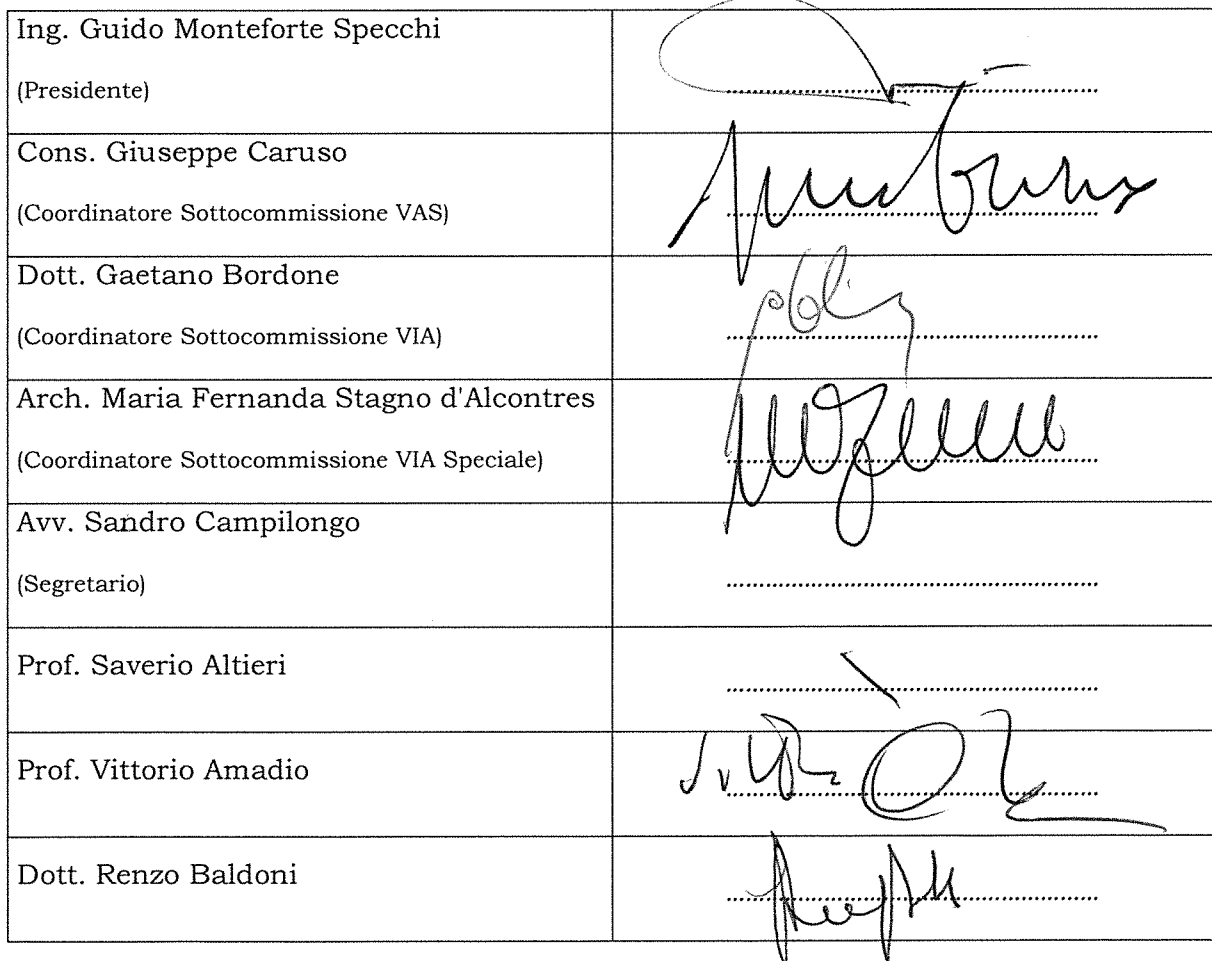 Ing. Guido Monteforte Specchi
(Presidente)
Cons. Giuseppe Caruso
(Coordinatore Sottocommissione VAS)
Dott. Gaetano Bordone
(Coordinatore Sottocommissione VIA)
Arch. Maria Fernanda Stagno d'Alcontres
(Coordinatore Sottocommissione VIA Speciale)
Avv. Sandro Campilongo
(Segretario)
Prof. Saverio Altieri
Prof. Vittorio Amadio
Dott. Renzo Baldoni